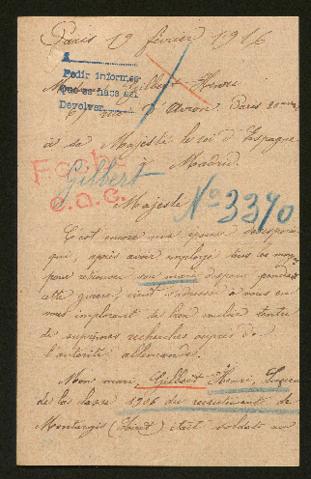 Paris 19 février 1916
A
Pedir informes
Que se haga así
Devolver
Gilbert Henri
rue d'Avron Paris 20
de Majesté le roi d'Espagne
à Madrid
Gilbert
Nº 3370
C.O.G.
Majesté
C'est encore une épouse désespérée
qui, après avoir employé tous les moyens
pour retrouver son mari disparu pendant
cette guerre, vient s'adresser à vous en
vous implorant de bien vouloir tenter
de suprêmes recherches auprès de
l'autorité allemande.
Mon mari, Gilbert Henri,
de la classe 1906 du recrutement de
Montargis (Loiret) était soldat au